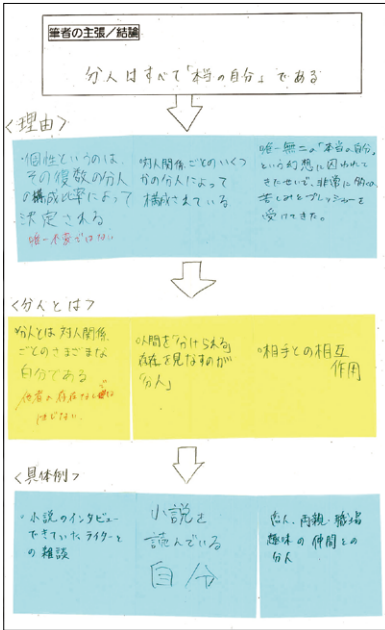 筆者の主張/結論
分人はすべて「本当の自分」である
<理由>
・個性というのは、
その複数の分人
の構成比率によって
決定される
唯一不変ではない
・対人関係ごとのいくつ
かの分人によって
構成されている
・唯一無二の「本当の自分」
という幻想に囚われて
きたせいで、非常に多くの
苦しみとプレッシャーを
受けてきた。
<分人とは>
・分人とは対人関係
ごとのさまざまな
自分である
他者の存在なくしては
・人間を「分けられる」
存在を見なすのが
「分人」
・相手との相互
作用
<具体例>
・小説のインタビュー
できていたライターと
の雑談
小説を
読んでいる
自分
恋人、両親・職場
趣味の仲間との
分人